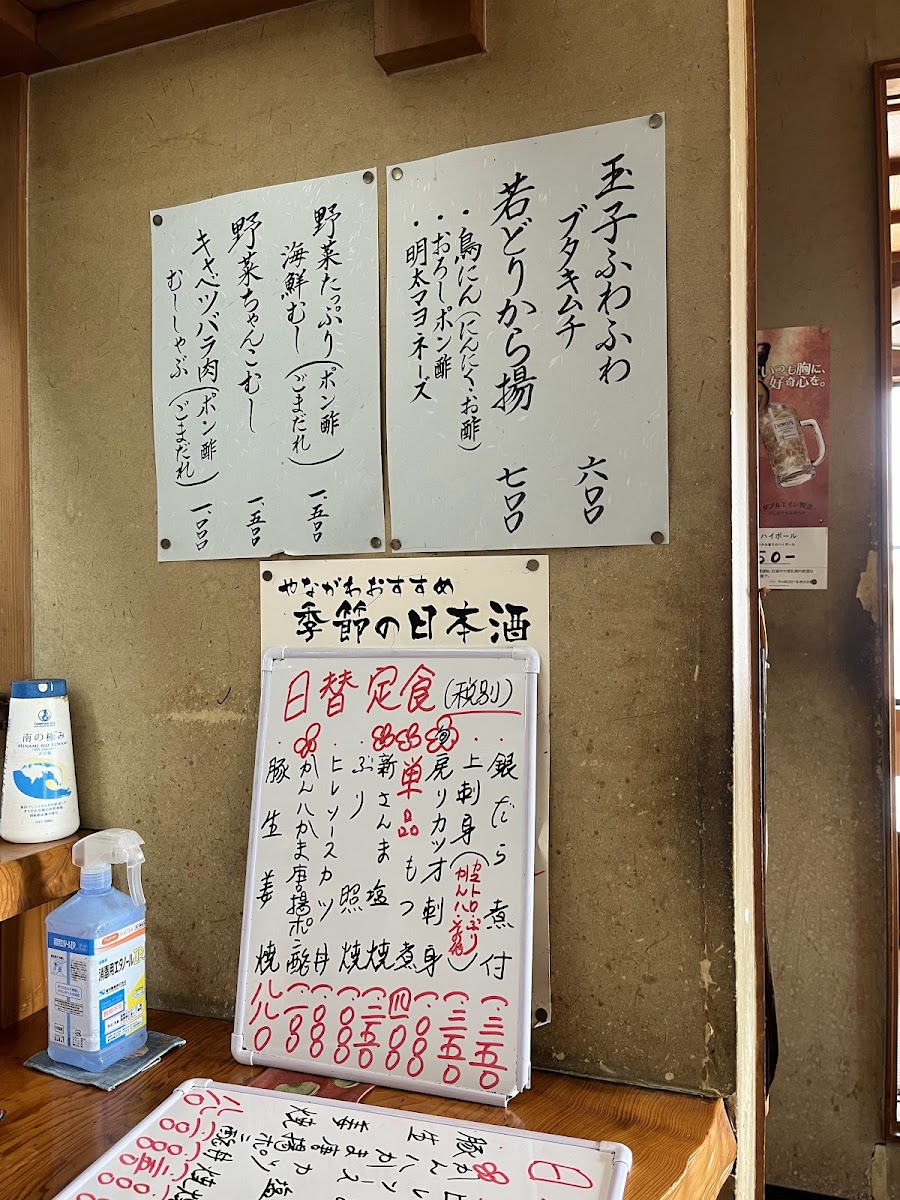 玉子ふわふわ
ブタキムチ 六〇〇
若どりから揚 七〇〇
・鳥にん(にんにく・お酢)
・おろしポン酢
・明太マヨネーズ
野菜たっぷり(ポン酢
海鮮むし(ごまだれ) 一、五〇〇
野菜ちゃんこむし 一、五〇〇
キャベツバラ肉(ポン酢
むししゃぶ(ごまだれ) 一、〇〇〇
やながわおすすめ
季節の日本酒
日替定食(税別)
・銀だら煮付 一、三五〇
・上刺身 一、三五〇
戻りカツオ刺身 一、〇〇〇
単品もつ煮 四〇〇
新さんま塩焼 一、二五〇
・ぶり照焼 一、〇〇〇
・ヒレソースカツ丼 一、〇〇〇
かんパかま唐揚ポン酢 一、一〇〇
・豚生姜焼 八八〇
いつも胸に、
好奇心を。
ハイボール
50-
南の極み
MINAMI NO KIWAMI
消毒用エタノールIP